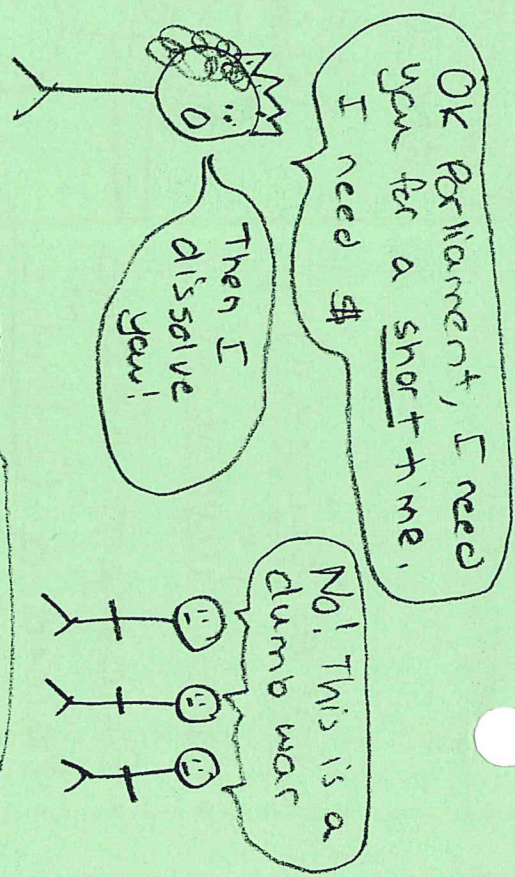 OK Parliament, I need
you for a short time.
I need $
No! This is a
dumb war
Then I
dissolve
you!